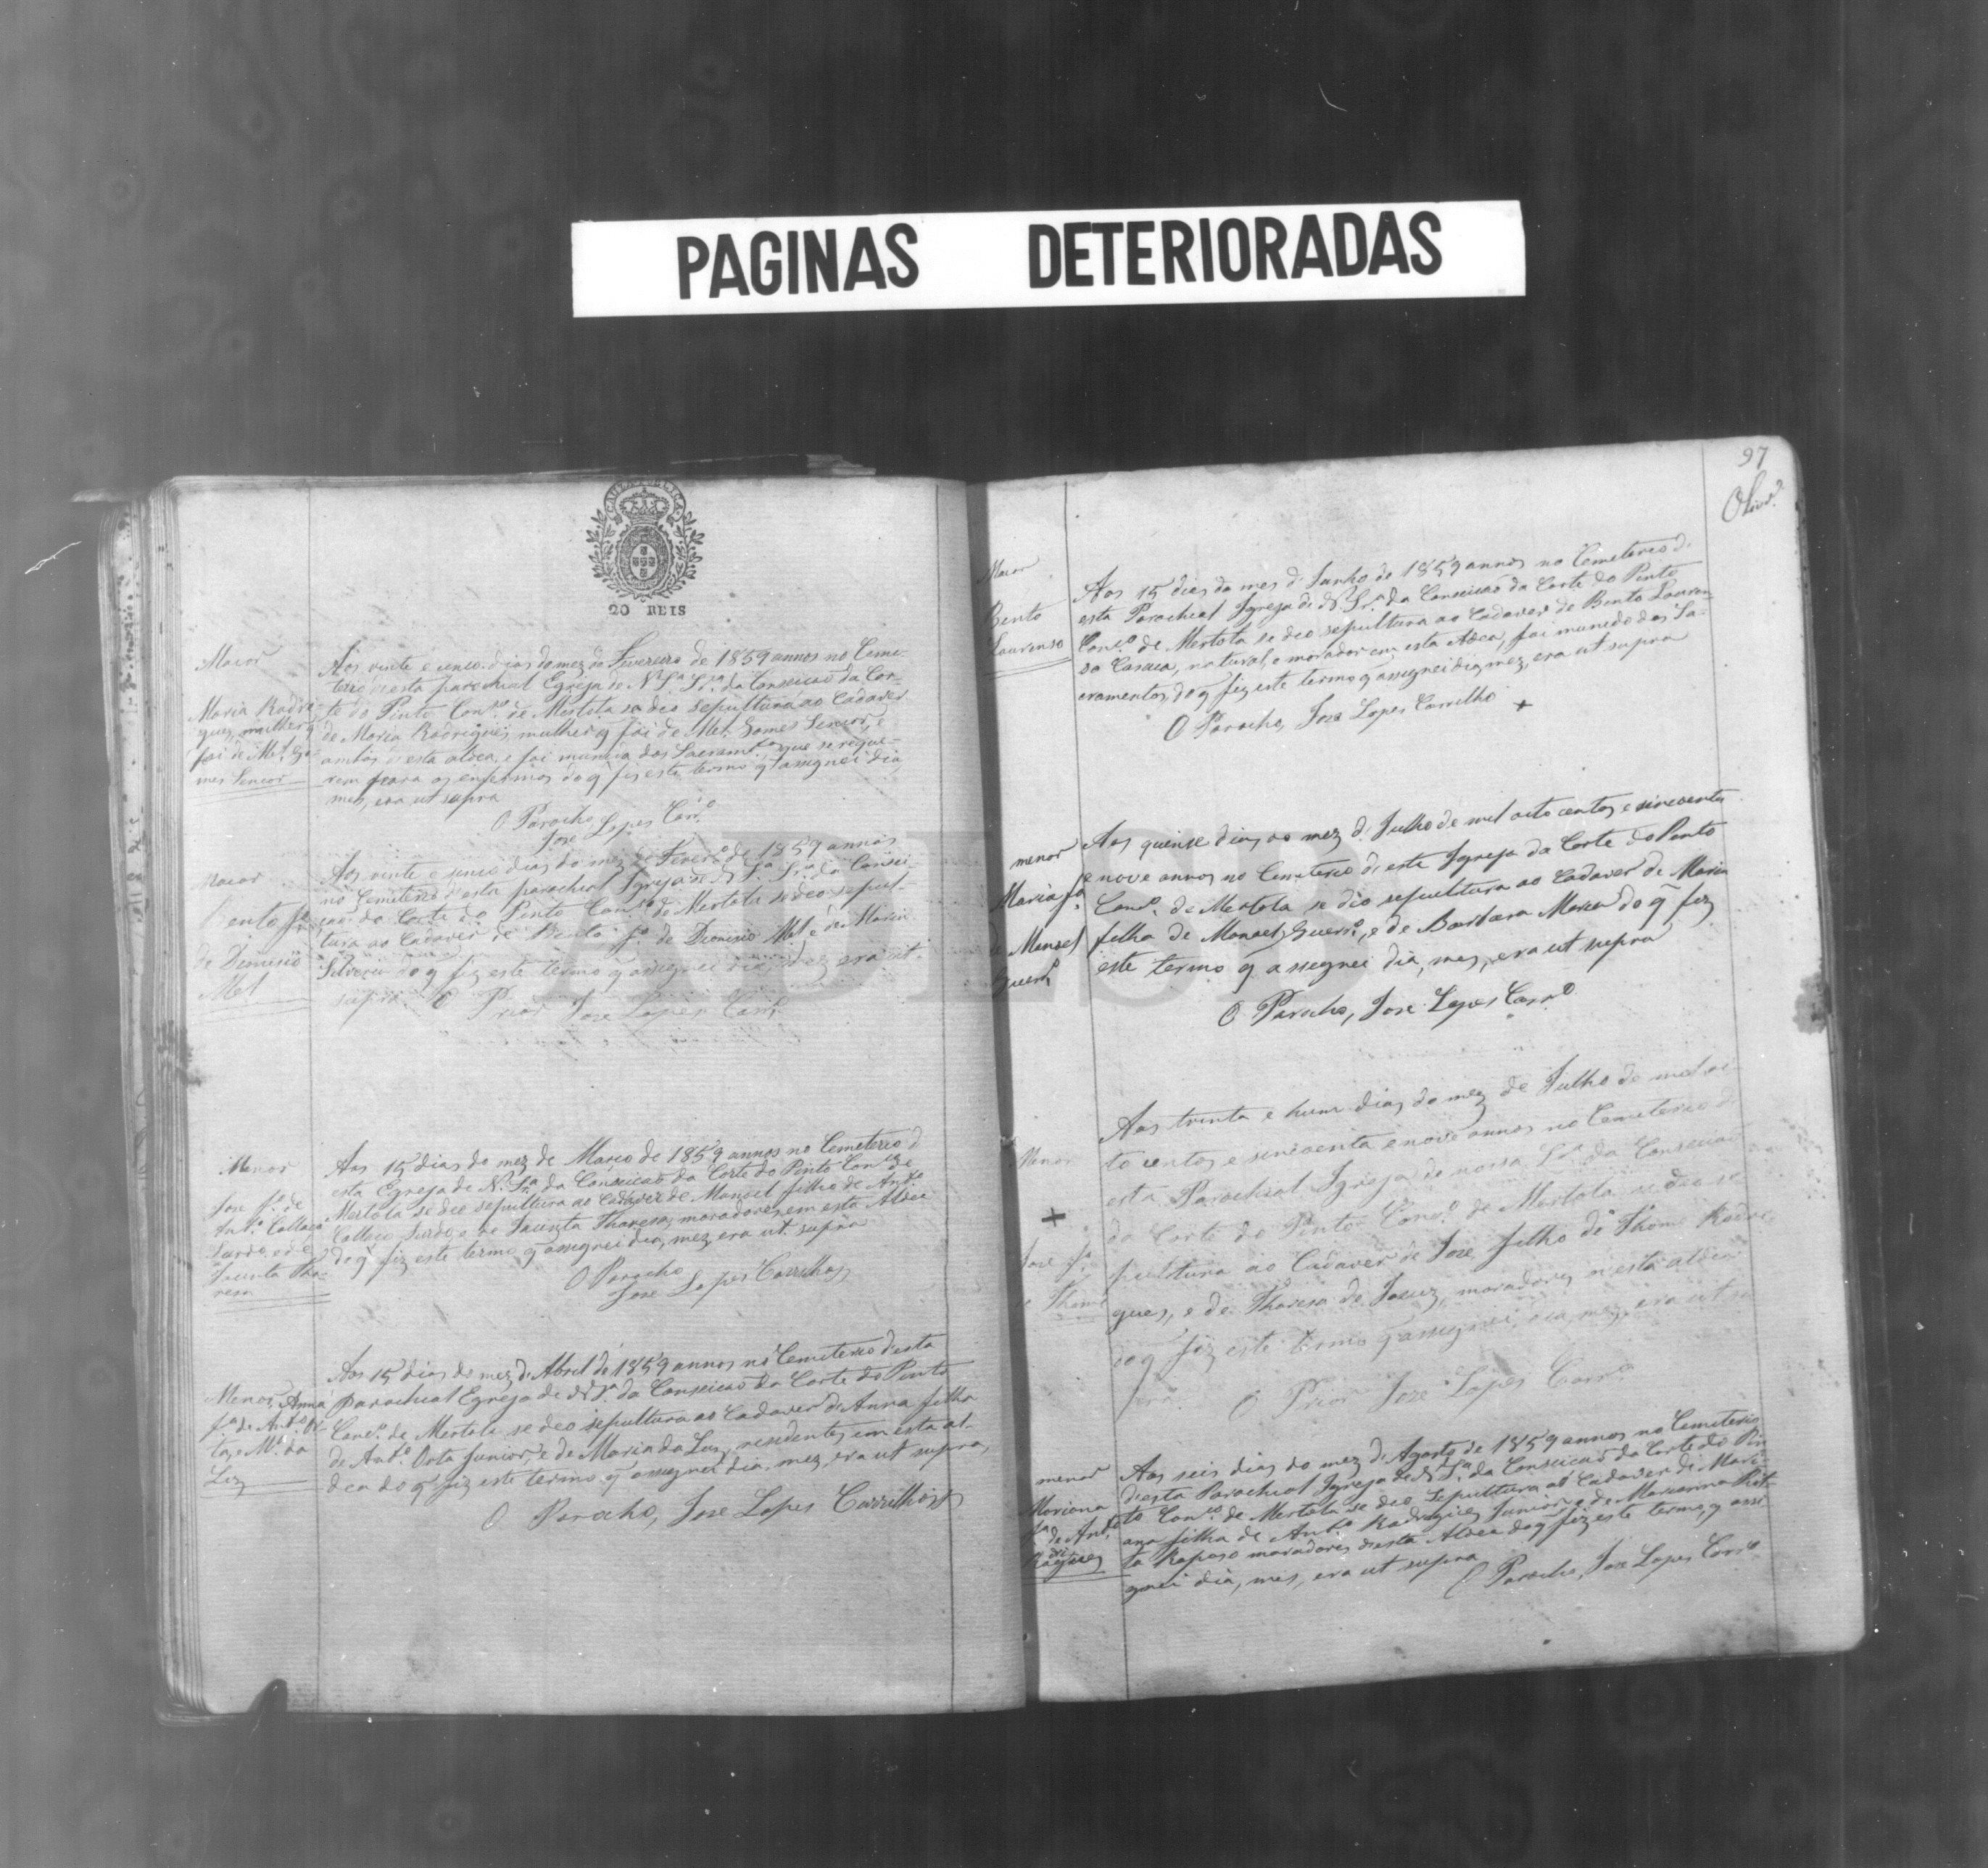 PAGINAS DETERIORADAS
20 REIS
Maior
Maria Rodri-
gues, mulher q̃
foi de Mel. Go-
mes Sencor
Aos vinte e sinco dias do mez de Fivereiro de 1859 annos no Ceme-
terio d'esta parochial Egreja de N. Sra. da Conseicaõ da Cor-
te do Pinto Conco. de Mertola se deo sepultura ao Cadaver
de Maria Rodrigues, mulher q̃ foi de Mel. Gomes Sencor, e
ambos d'esta aldea, e foi munida dos Sacramtos. que se reque-
rem para os enfermos do q̃ fiz este termo q̃ assignei dia
mes, era ut supra
O Parocho
Jose Lopes Carro.
Maior
Bento fo.
de Dionisio
Mel
Aos vinte e sinco dias do mez de Fivero. de 1859 annos
no Cemeterio d'esta parochial Igreja de N. Sra. da Consei-
caõ da Corte do Pinto Conco. de Mertola se deo sepul-
tura ao Cadaver de Bento fo. de Dionisio Mel. e de Maria
Silveria do q̃ fiz este termo q̃ assignei dia, mez era ut
supra O Prior Jose Lopes Carro.
Menor
Jose fo. de
Anto. Collaço
Surdo, e de
Jacinta The-
resa
Aos 15 dias do mez de Março de 1859 annos no Cemeterio d
esta Egreja de N. Sra. da Conseicaõ da Corte do Pinto Conco. de
Mertola se deo sepultura ao Cadaver de Manoel filho de Anto.
Collaco Surdo, e de Jacinta Tharesa, moradores em esta Aldea
do q̃ fiz este termo q̃ assignei dia, mez, era ut supra
O Parocho
Jose Lopes Carrilho
Menor, Anna
fa. de Anto. Or-
ta, e Ma. da
Luz
Aos 15 dias do mez de Abril de 1859 annos no Cemeterio d'esta
parochial Egreja de N. Sa. da Conseicaõ da Corte do Pinto
Conco. de Mertola se deo sepultura ao Cadaver de Anna filha
de Anto. Orta Junior, e de Maria da Luz, residentes em esta al-
dea do q̃ fiz este termo q̃ assignei dia, mez, era ut supra,
O Parocho, Jose Lopes Carrilho
97
Maior
Bento
Lourenso
Aos 15 dias do mes de Junho de 1859 annos no Cemeterio d
esta Parochial Igreja de N. Sra. da Conseicaõ da Corte do Pinto
Conco. de Mertola se deo sepultura ao Cadaver de Bento Louren
so Casaca, natural, e morador em esta Aldea, foi munido dos Sa-
cramentos, do q̃ fiz este termo q̃ assignei dia, mez, era ut supra
O Parocho, Jose Lopes Carrilho +
menor
Maria fa.
de Manoel
Guerro.
Aos quinse dias do mez de Julho de mil oito centos e sincoenta
e nove annos no Cemeterio d'esta Igreja da Corte do Pinto
Conco. de Mertola se deo sepultura ao Cadaver de Maria
filha de Manoel Guerro., e de Barbara Maria do q̃ fiz
este termo q̃ assignei dia, mes, era ut supra
O Parocho, Jose Lopes Carro.
Menor
+
Jose fo.
de Thomé
Aos trinta e hum dias do mez de Julho de mil oi-
to centos e sincoenta e nove annos no Cemeterio d
esta Parochial Igreja de nossa Sra. da Conseicaõ
da Corte do Pinto Conco. de Mertola se deo se-
pultura ao Cadaver de Jose, filho de Thomé Rodri-
gues, e de Tharesa de Jesuz, moradores n'esta aldea
do q̃ fiz este termo q̃ assignei, dia, mez, era ut su
pra. O Prior Jose Lopes Carro.
menor
Mariana
fa. de Anto.
Rodrigues
Aos seis dias do mez de Agosto de 1859 annos no Cemiterio
d'esta Parochial Igreja de N. Sa. da Conseicaõ da Corte do Pin
to Conco. de Mertola se deo sepultura ao Cadaver de Mari-
ana filha de Anto. Rodrigues Junior, e de Marianna Rit-
ta Raposo moradores d'esta Aldea do q̃ fiz este termo, q̃ assi
gnei dia, mes, era ut supra
O Parocho, Jose Lopes Carro.